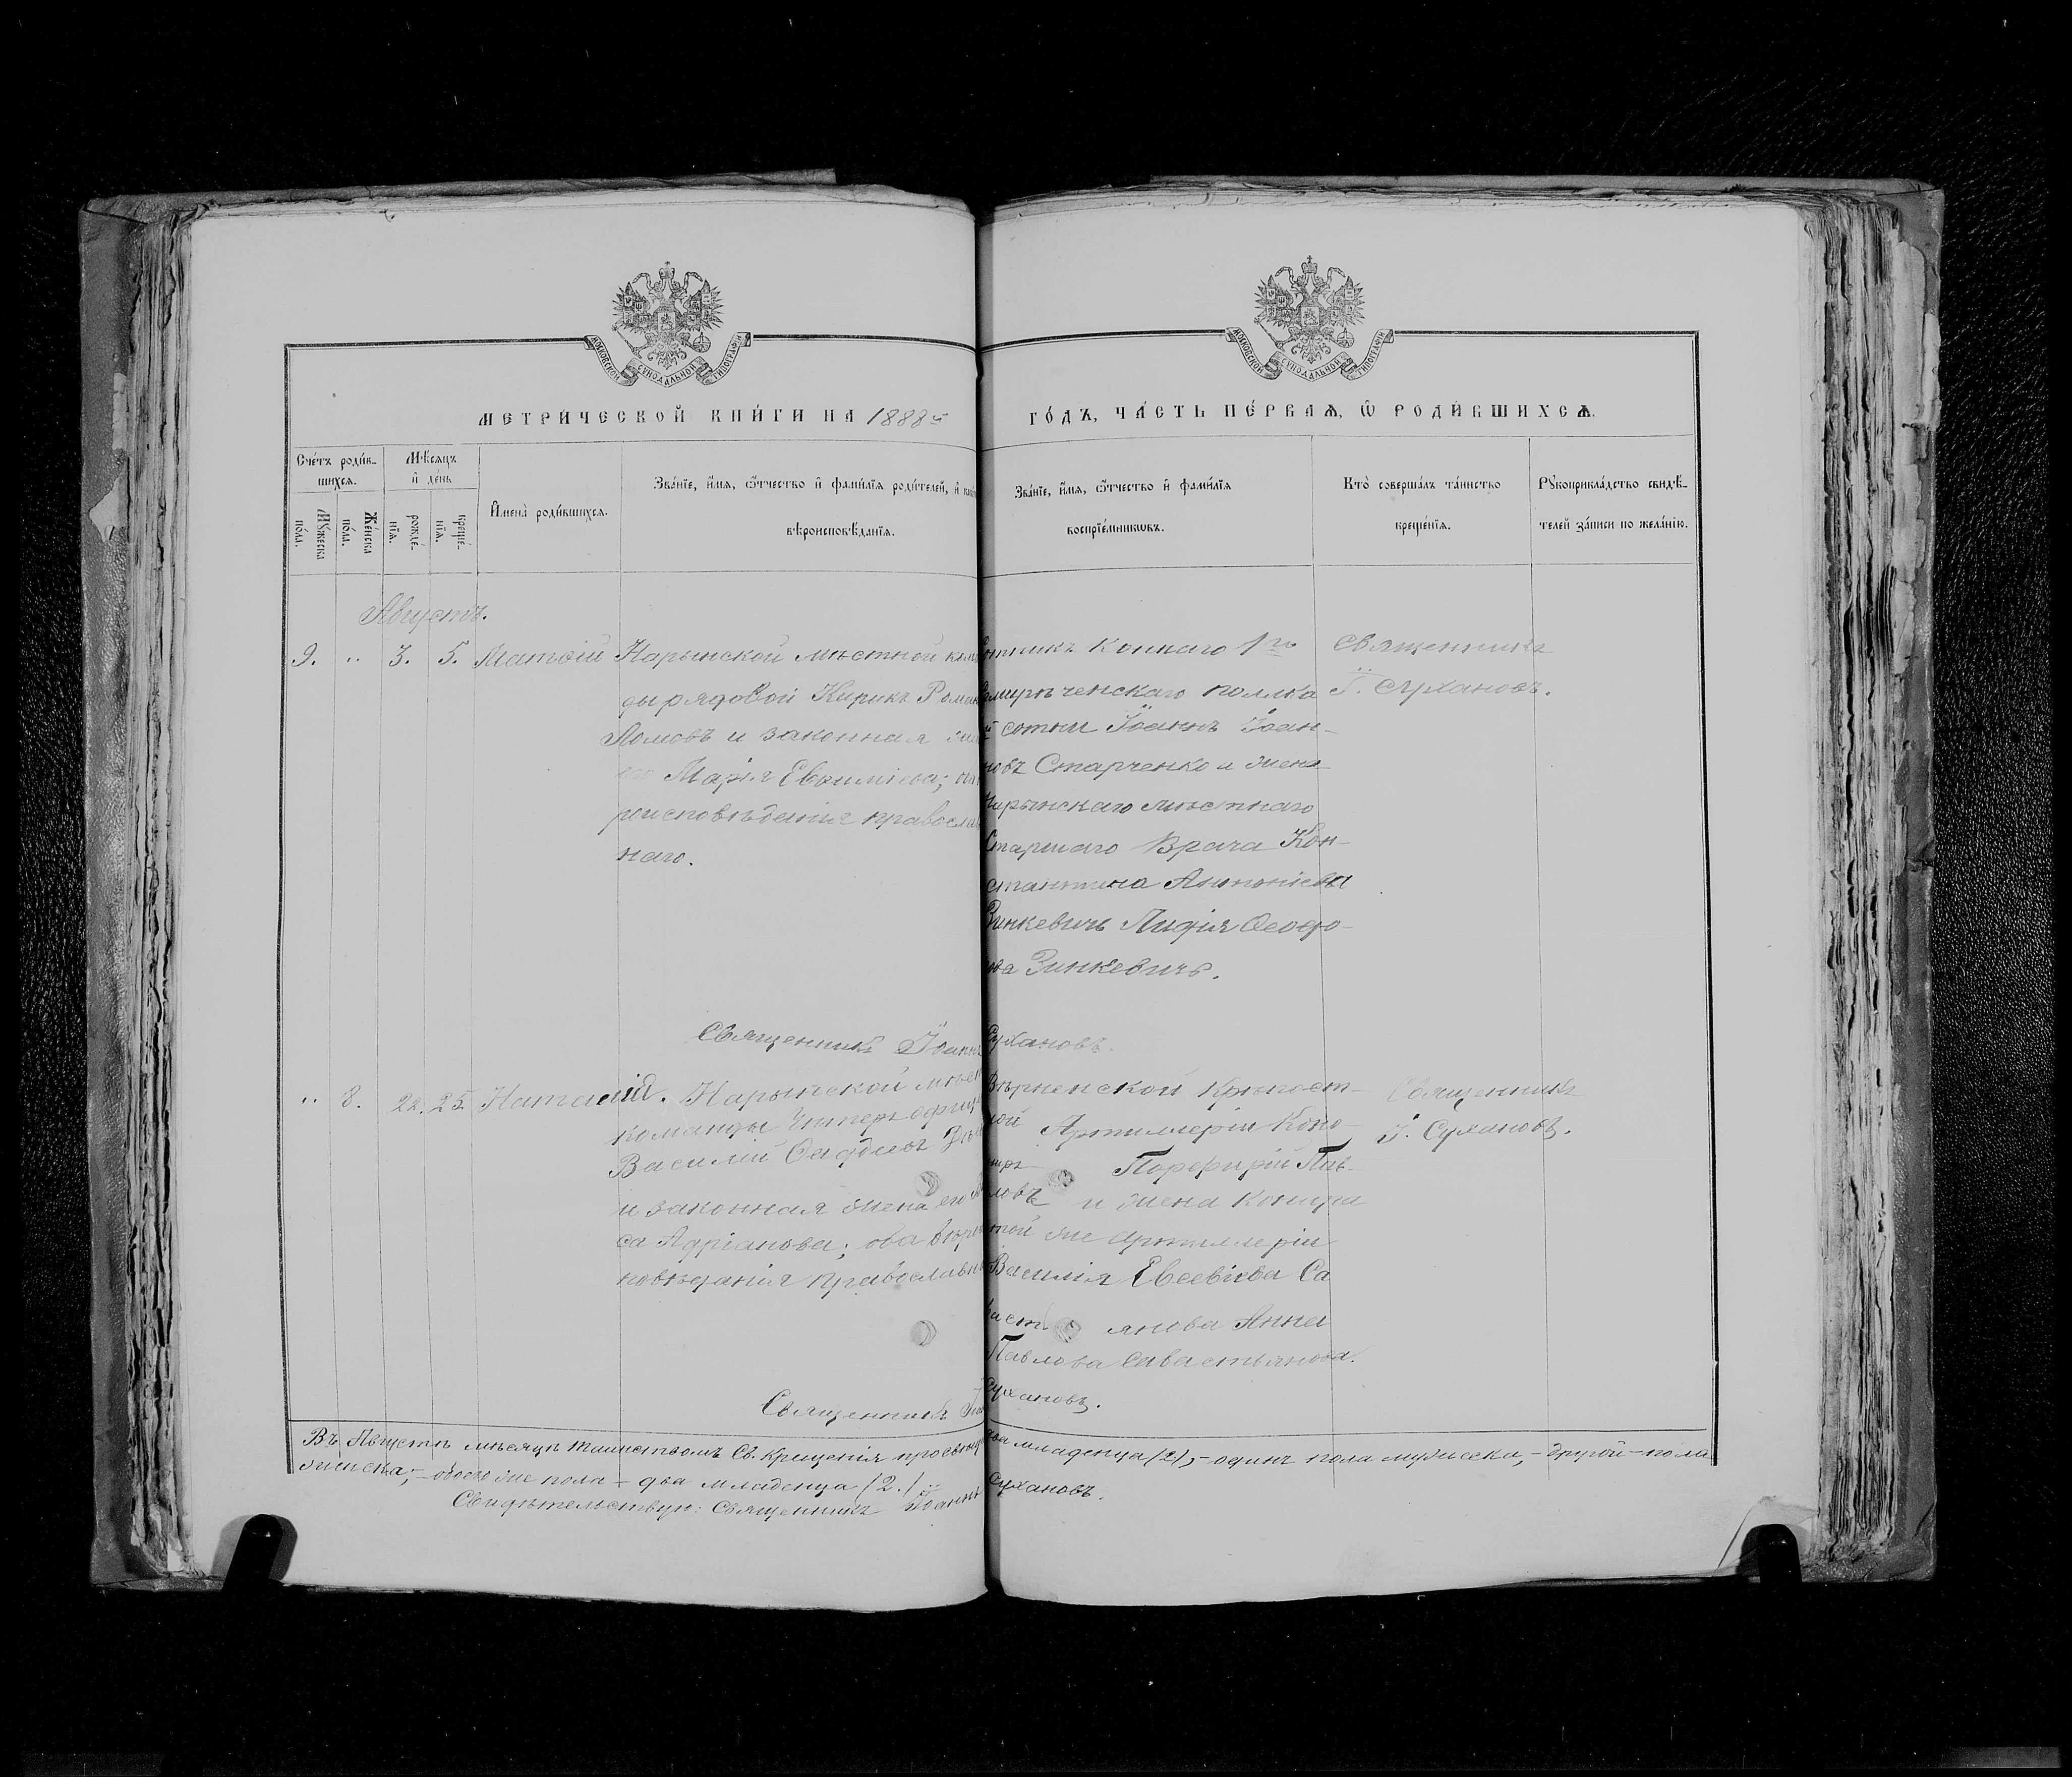 МОСКОВСКОЙ СѴНОДАЛЬНОЙ ТИПОГРАФІИ
МОСКОВСКОЙ СѴНОДАЛЬНОЙ ТИПОГРАФІИ
МЕТРИ́ЧЕСКОЙ КНИ́ГИ НА 1888й
ГО́ДЪ, ЧА́СТЬ ПЕ́РВАѦ, Ѡ РОДИ́ВШИХСѦ.
Сче́тъ роди́в-
шихсѧ.
Мѣ́сѧцъ
и҆ де́нь
Мꙋ́жеска
по́ла.
Же́нска
по́ла.
рожде́-
нїѧ.
креще́-
нїѧ.
И҆мена̀ роди́вшихсѧ.
Зва́нїе, и҆́мѧ, ѻ҆́тчество и҆ фами́лїѧ роди́телей, и҆
вѣроисповѣ́данїѧ.
Зва́нїе, и҆́мѧ, ѻ҆́тчество и҆ фами́лїѧ
воспрїе́мникѡвъ.
Кто̀ соверша́лъ та́инство
креще́нїѧ.
Рꙋкоприкла́дство свидѣ́-
телей за́писи по жела́нїю.
Августъ.
9. „ 3. 5. Матѳій
Нарынской мѣстной
ды рядовой Кирикъ
Ломовъ и законная
Марія Евѳиміева;
роисповѣданія православ
наго.
Коннаго 1го
полка
сотни Іоаннъ Іоан-
новъ Старченко и жена
Нарынскаго мѣстнаго
Старшаго Врача Кон-
стантина Антоніева
Зинкевичъ Лидія Ѳеодо-
Зинкевичъ.
Священникъ
І. Сухановъ.
Священникъ Іоаннъ Сухановъ.
„ 8. 22. 25. Наталія.
Нарынской
команды Унтеръ офице
Василій
и законная жена его
са Адріанова; оба вѣрои
повѣданія православна
Вѣрненской Крѣпост-
ной Артиллеріи Коно-
ниръ Порфирій Пав-
ловъ и жена Конира
той же артиллеріи
Василія Евсевіева Са
васть янова Анна
Павлова Савастьянова.
Священникъ
І. Сухановъ.
Священникъ Сухановъ.
Въ Августѣ мѣсяцѣ таинствомъ Св. Крещенія просвѣще два младенца (2), – одинъ пола мужеска, – другой – пола
женска; – обоего же пола – два младенца (2.)
Свидѣтельствую: Священникъ Іоаннъ Сухановъ.